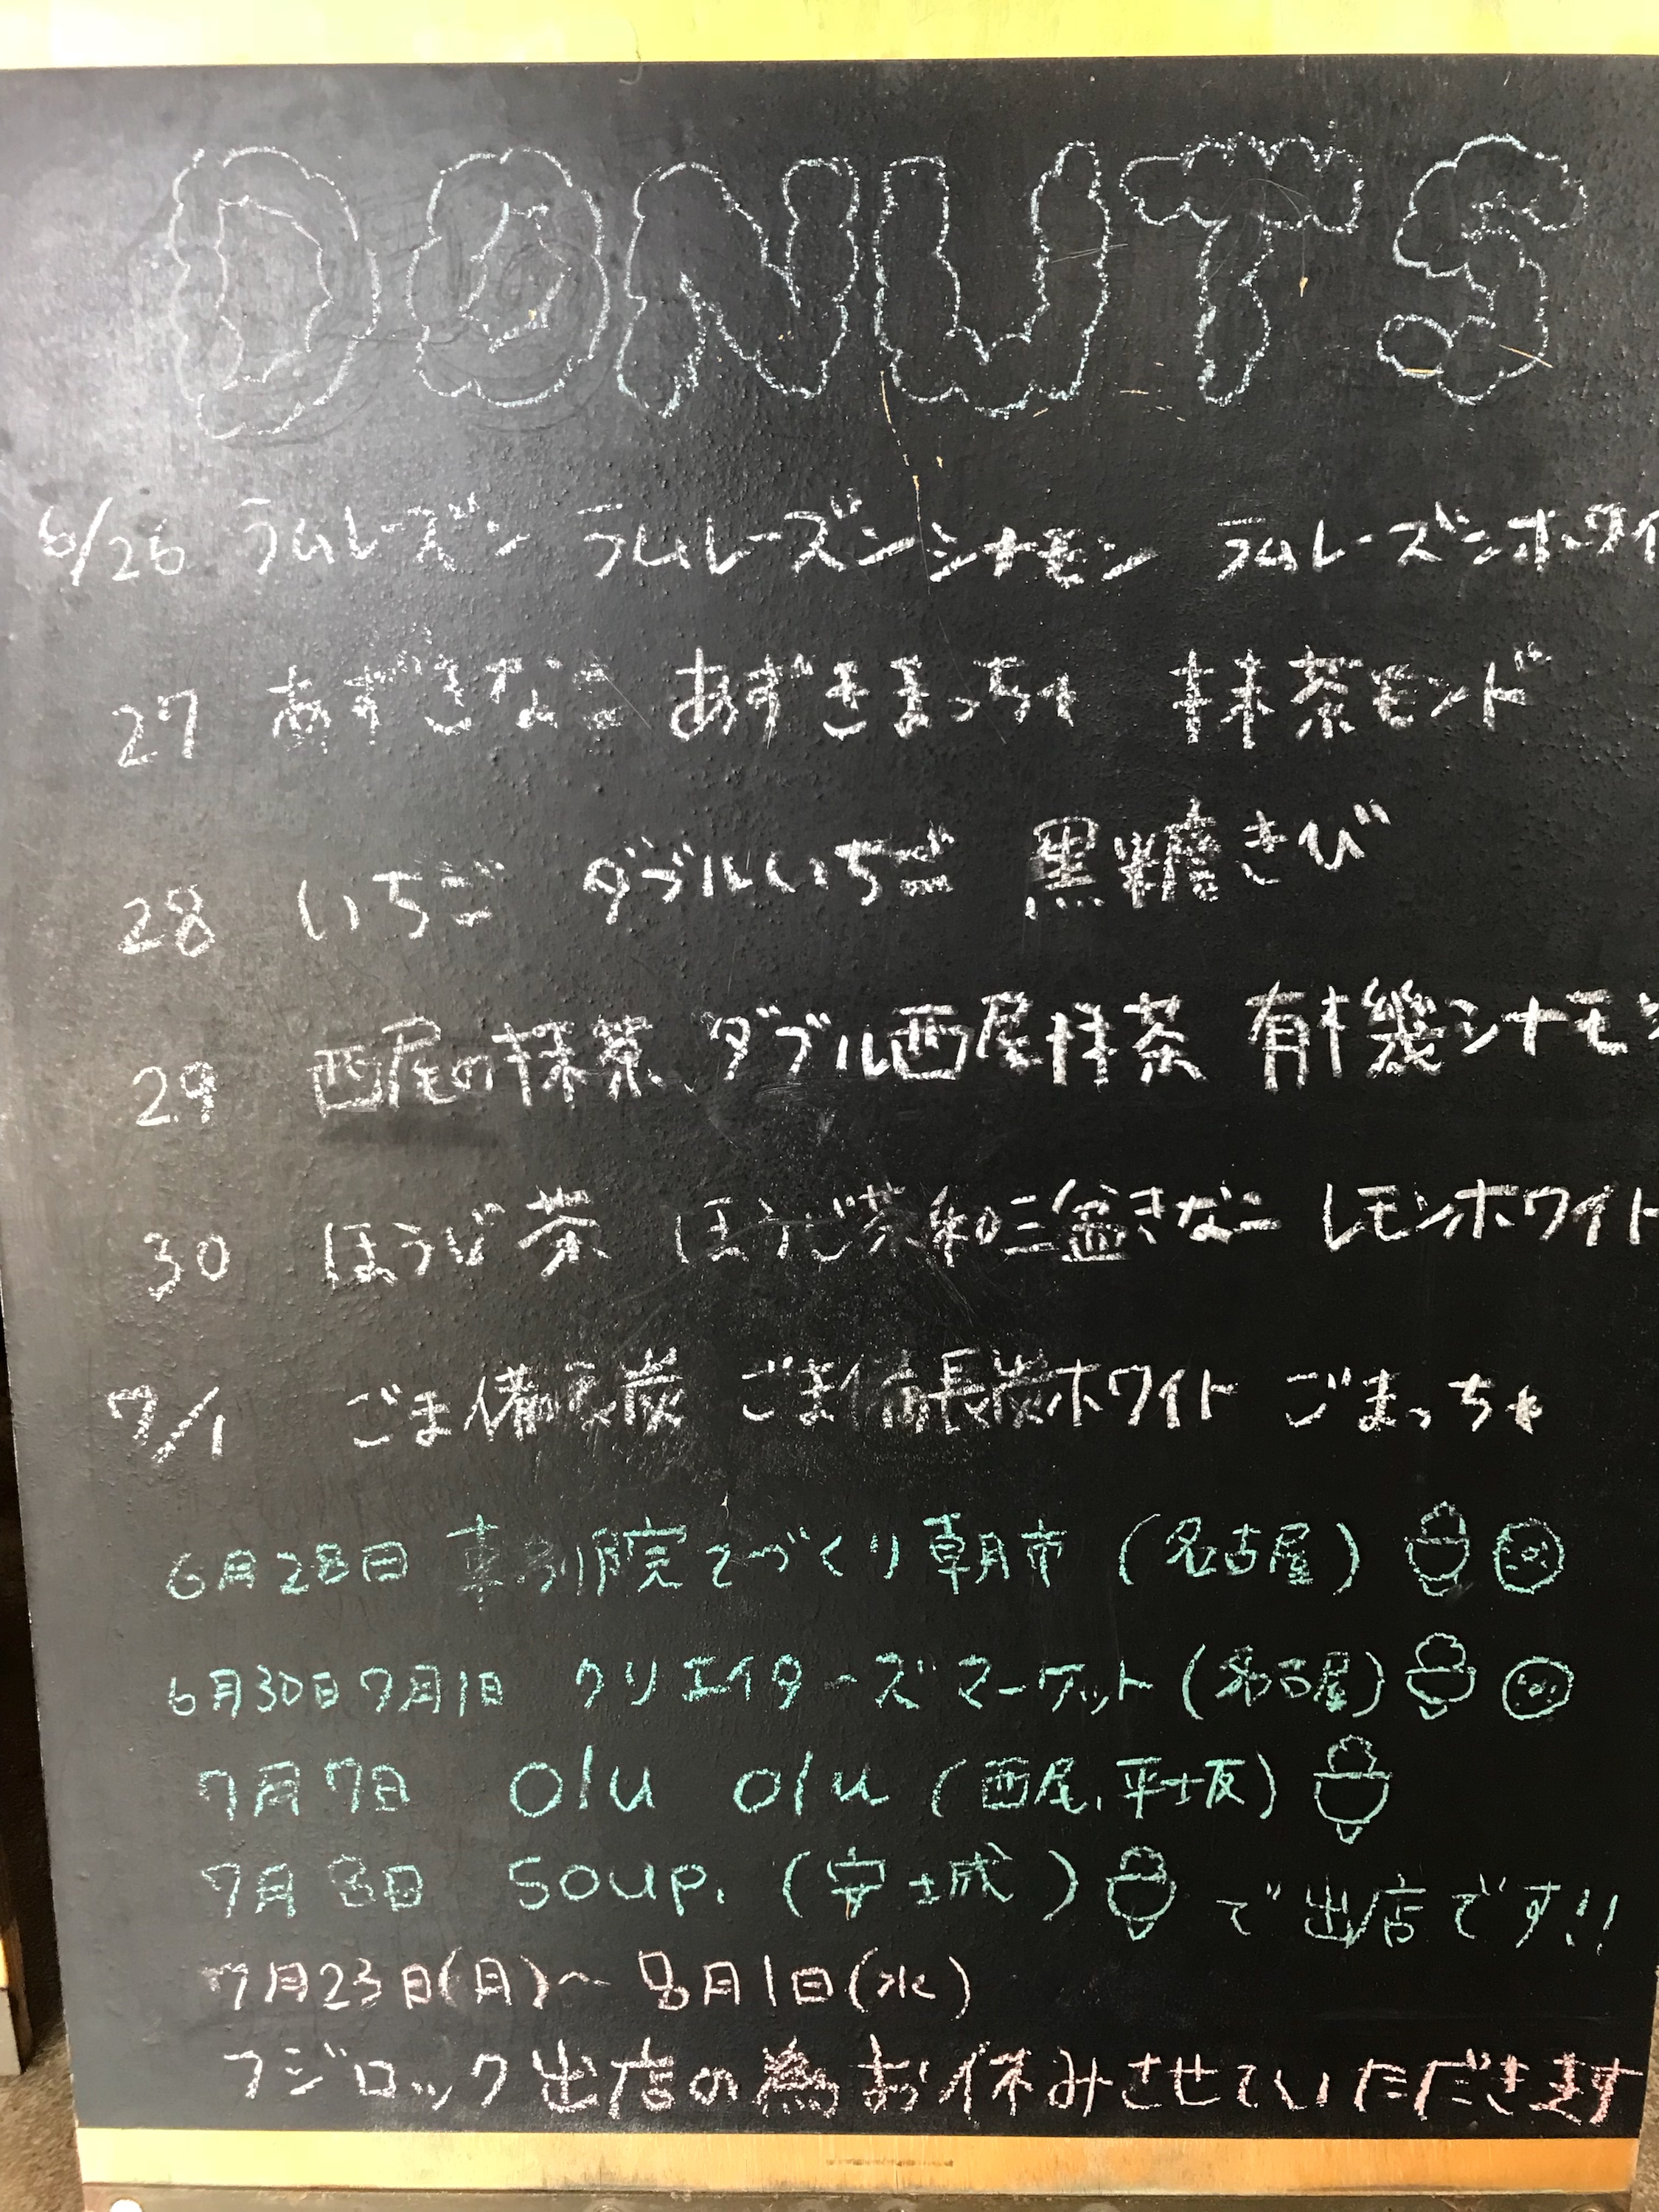 DONUTS
6/26 ラムレーズン ラムレーズンシナモン ラムレーズンホワイ
27 あずきなこ あずきまっちゃ 抹茶モンド
28 いちご ダブルいちご 黒糖きび
29 西尾の抹茶 ダブル西尾抹茶 有機シナモン
30 ほうじ茶 ほうじ茶和三盆きなこ レモンホワイト
7/1 ごま備長炭 ごま備長炭ホワイト ごまっちゃ
6月28日 東別院てづくり朝市 (名古屋)
6月30日7月1日 クリエイターズマーケット (名古屋)
7月7日 olu olu (西尾、平坂)
7月8日 soup. (安城) で出店です!!
7月23日(月)~8月1日(水)
フジロック出店の為お休みさせていただきます